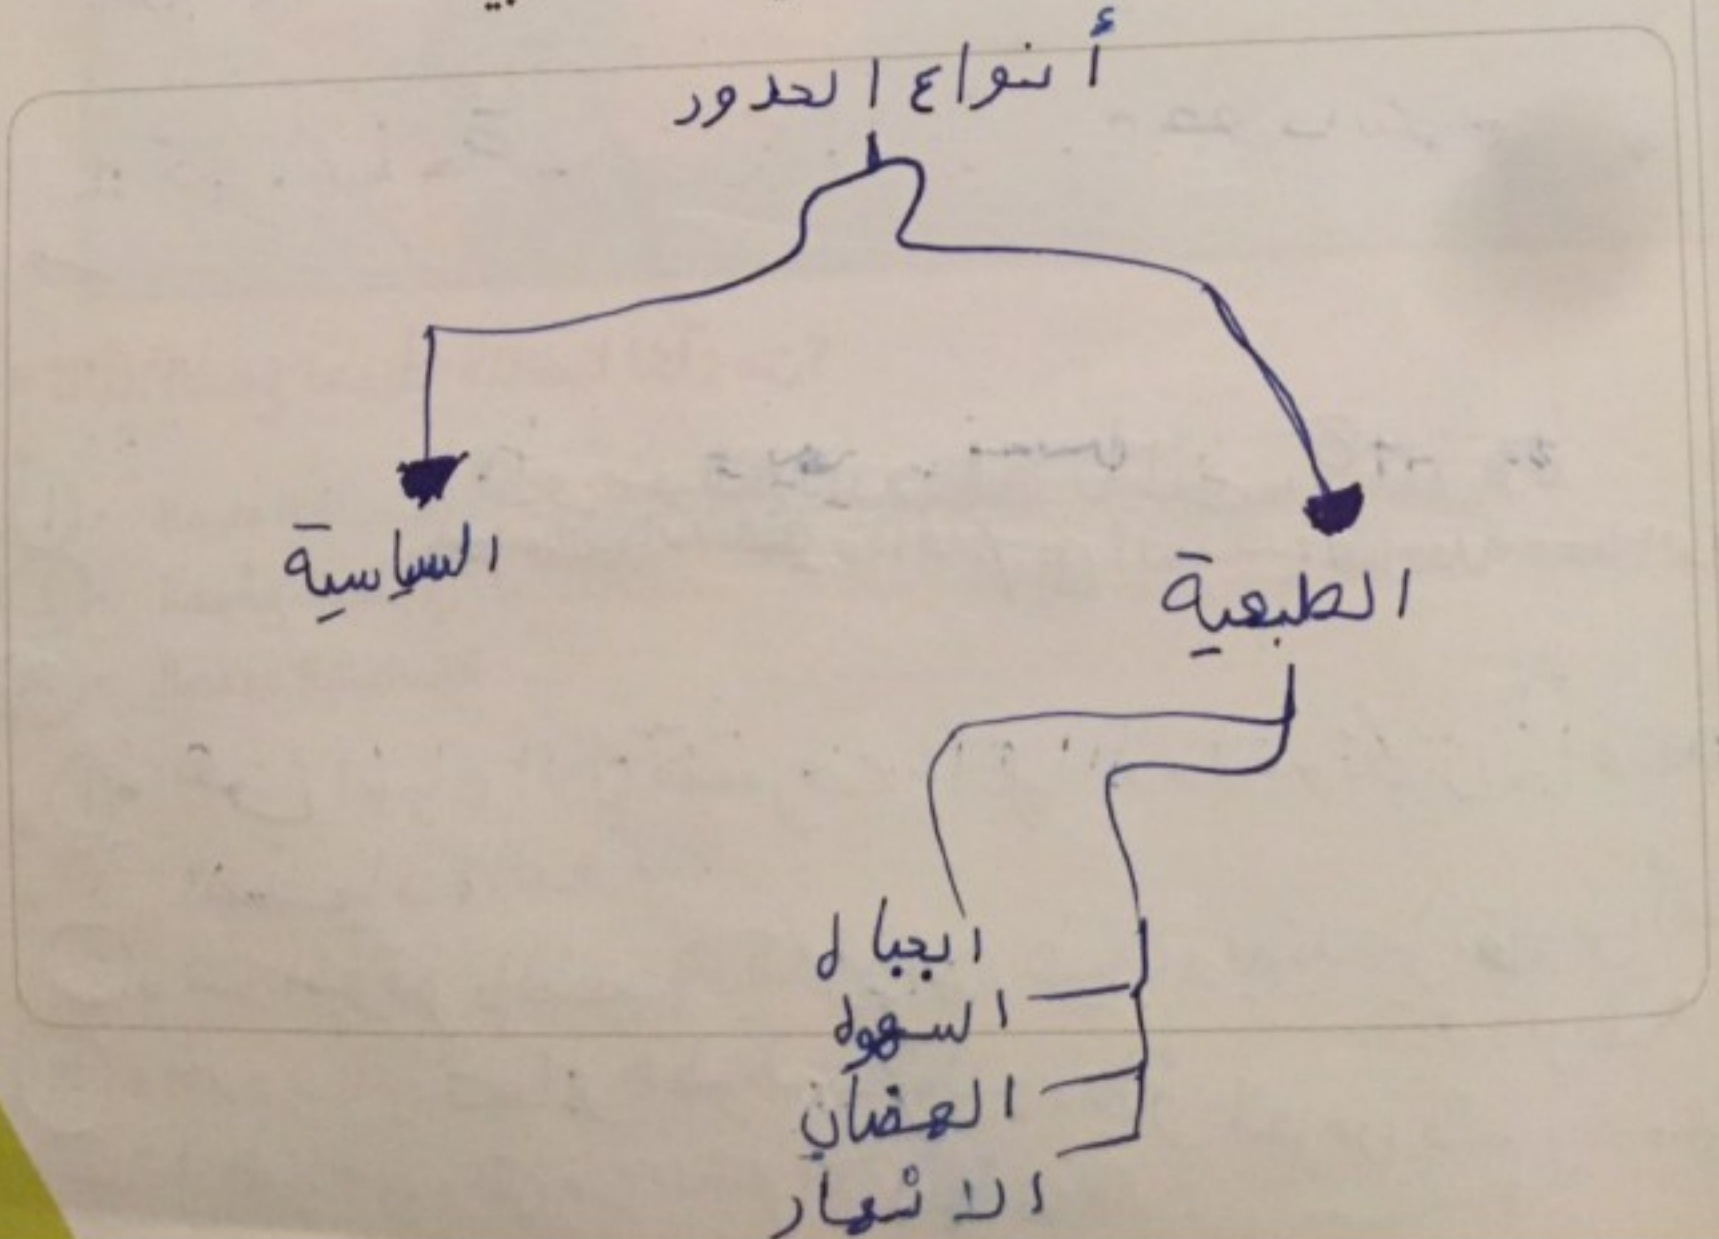 أنواع الحدود
الطبعية
السياسية
الجبال
السهول
الهضاب
الانهار